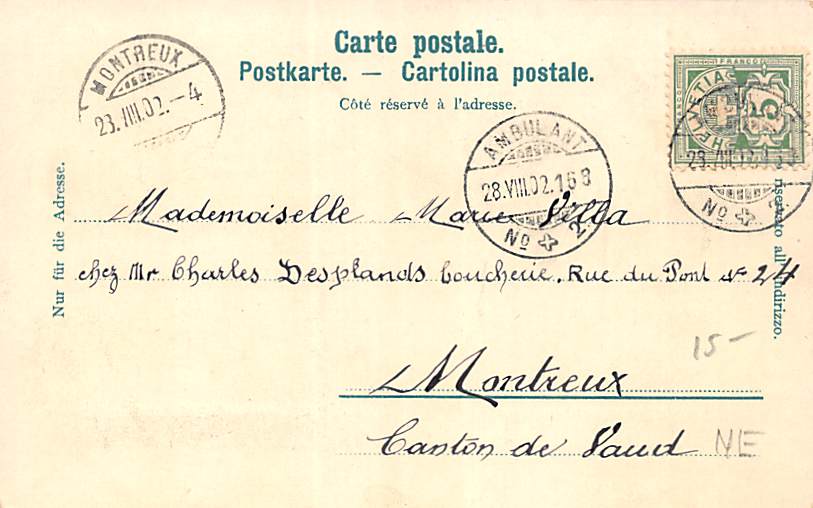 Carte postale.
Postkarte. — Cartolina postale.
Côté réservé à l'adresse.
MONTREUX
23.VIII.02.–4
FRANCO
HELVETIA
5
AMBULANT
28.VIII.02.168
No 2.
No 2.
Nur für die Adresse.
riservato all'indirizzo.
Mademoiselle Marie Villa
chez Mr Charles Desplands boucherie. Rue du Pont No 24
15 –
Montreux
Canton de Vaud
NE